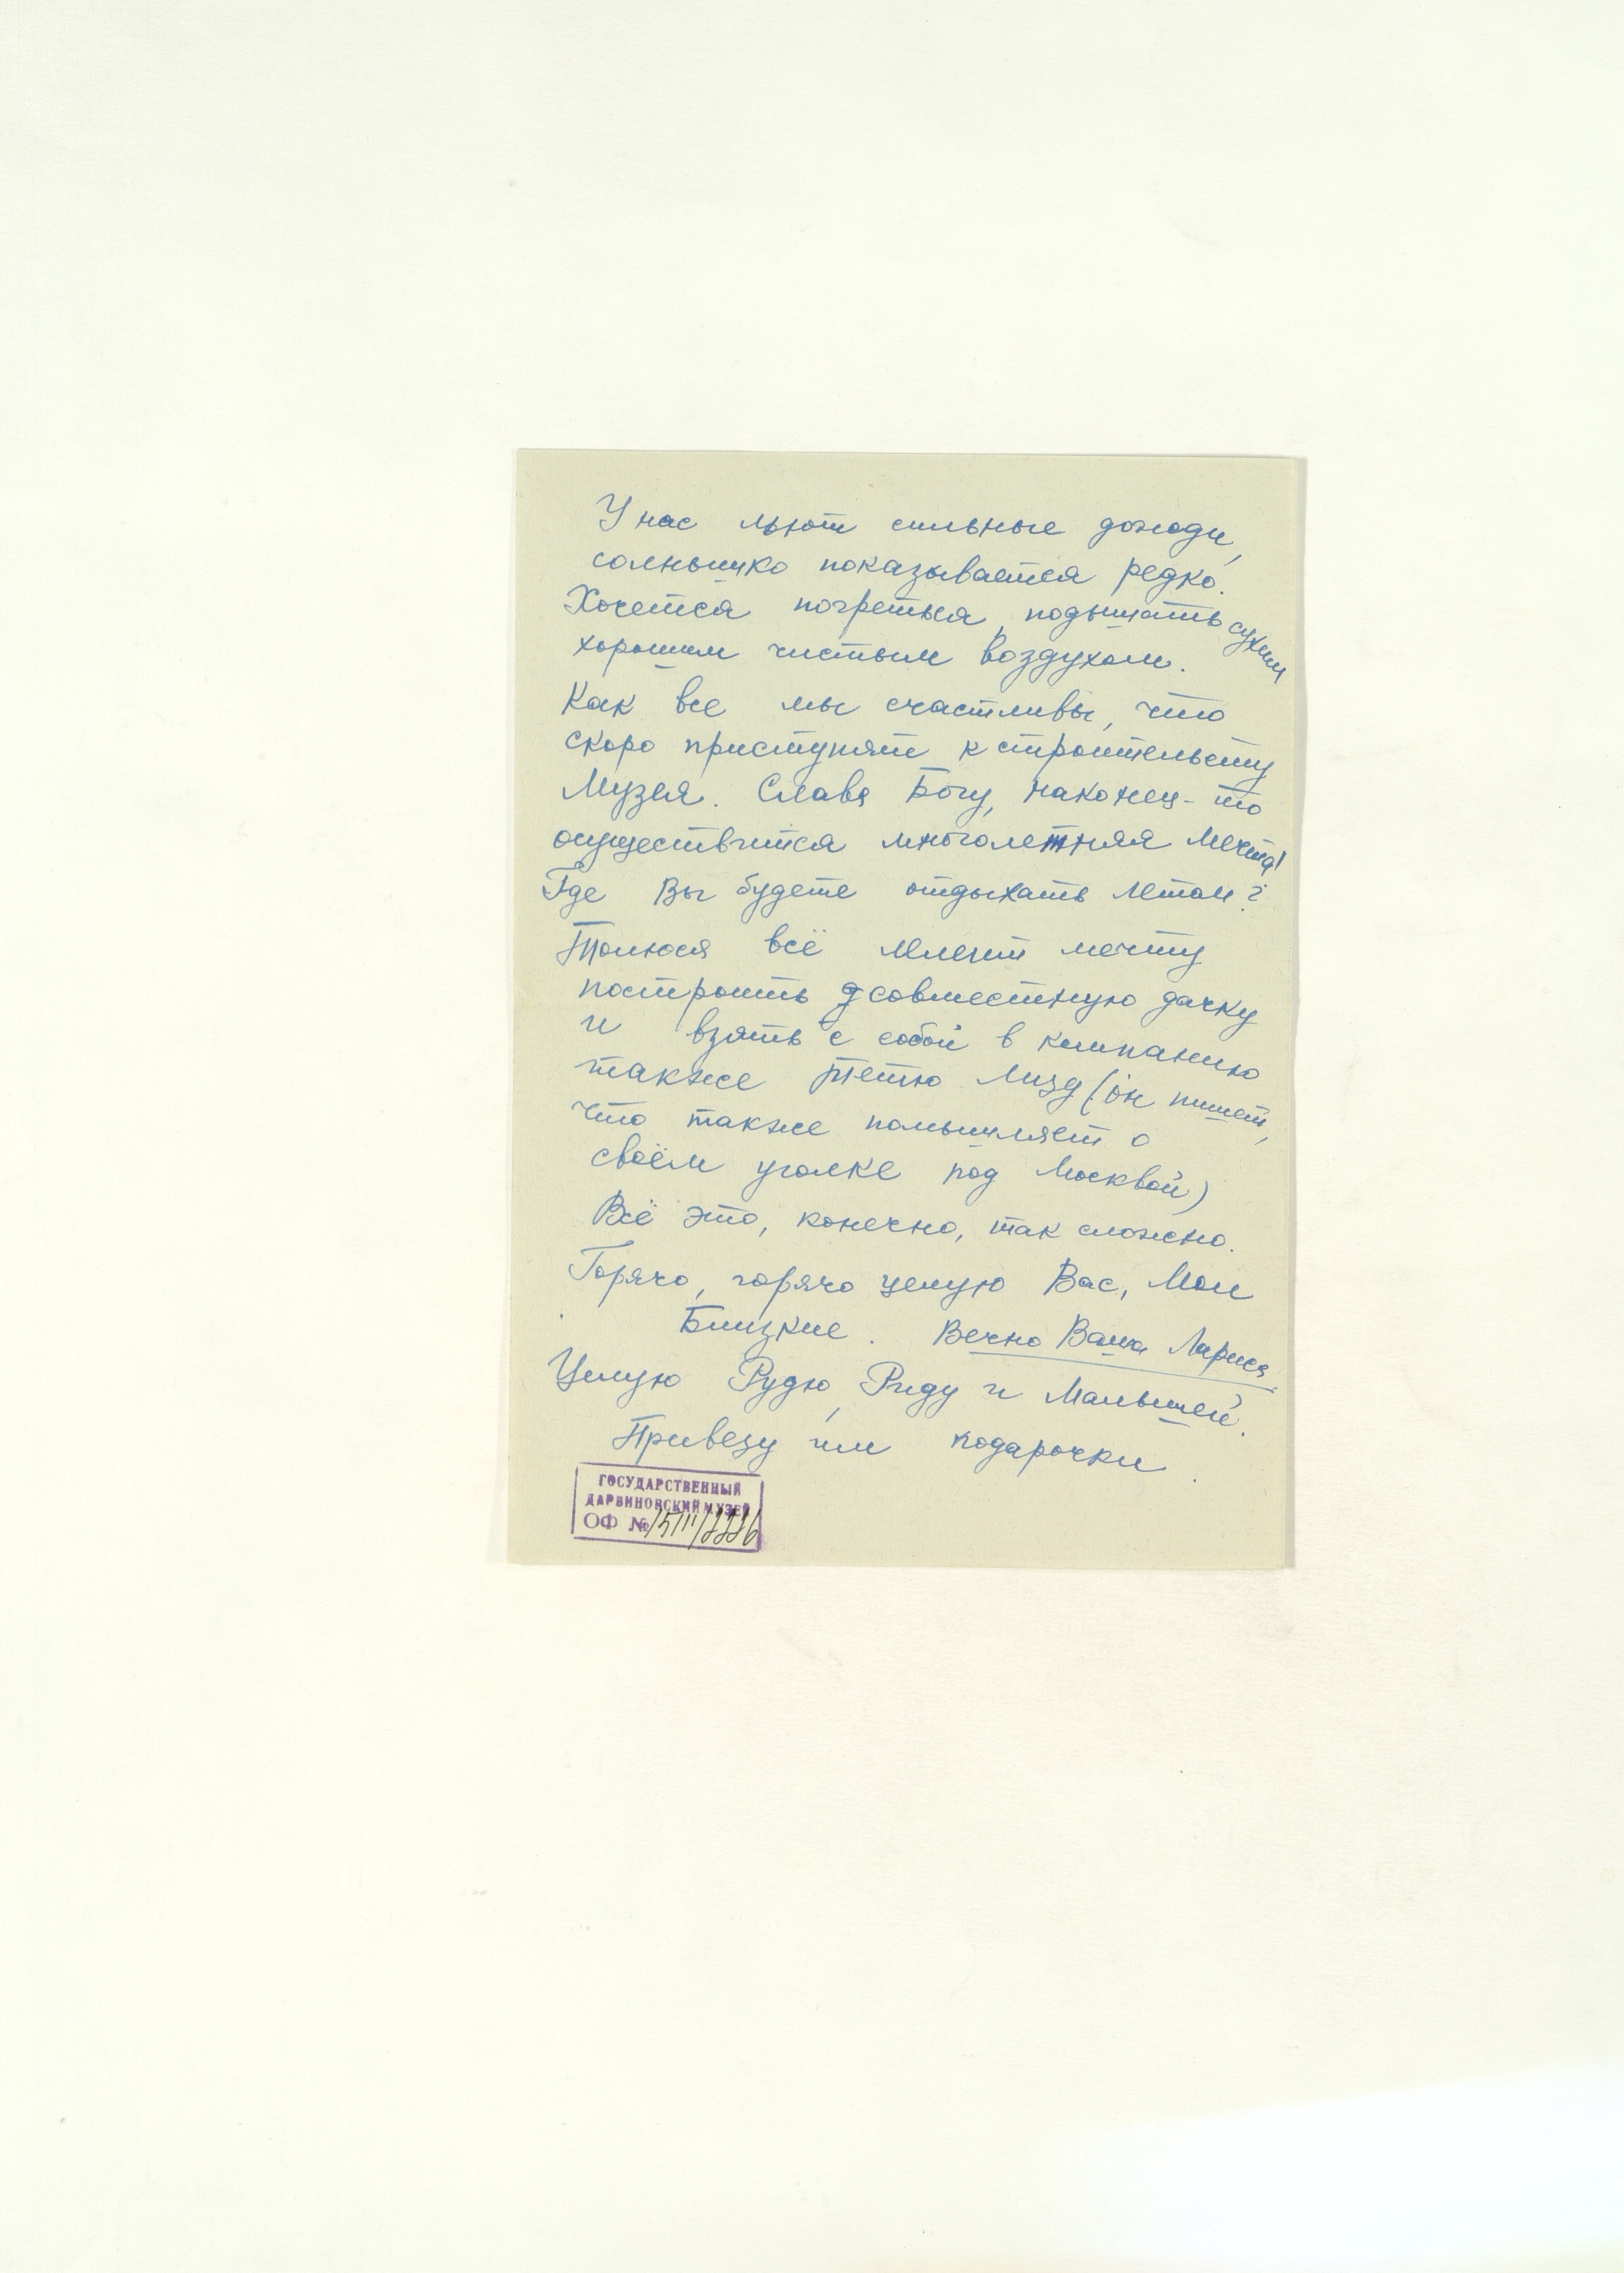 У нас льют сильные дожди,
солнышко показывается редко.
Хочется погреться, подышать сухим
хорошим чистым воздухом.
Как все мы счастливы, что
скоро приступят к строительству
Музея. Слава Богу, наконец-то
осуществится многолетняя мечта!
Где Вы будете отдыхать летом?
Толюся всё лелеит мечту
построить совместную дачку
и взять с собой в компанию
также тетю Лизу (он пишет,
что также помышляет о
своём уголке под Москвой)
Всё это, конечно, так сложно.
Горячо, горячо целую Вас, Мои
Близкие. Вечно Ваша Лариса
Целую Рудю, Риду и Малышей.
Привезу им подарочки.
ГОСУДАРСТВЕННЫЙ
ДАРВИНОВСКИЙ МУЗЕЙ
ОФ №